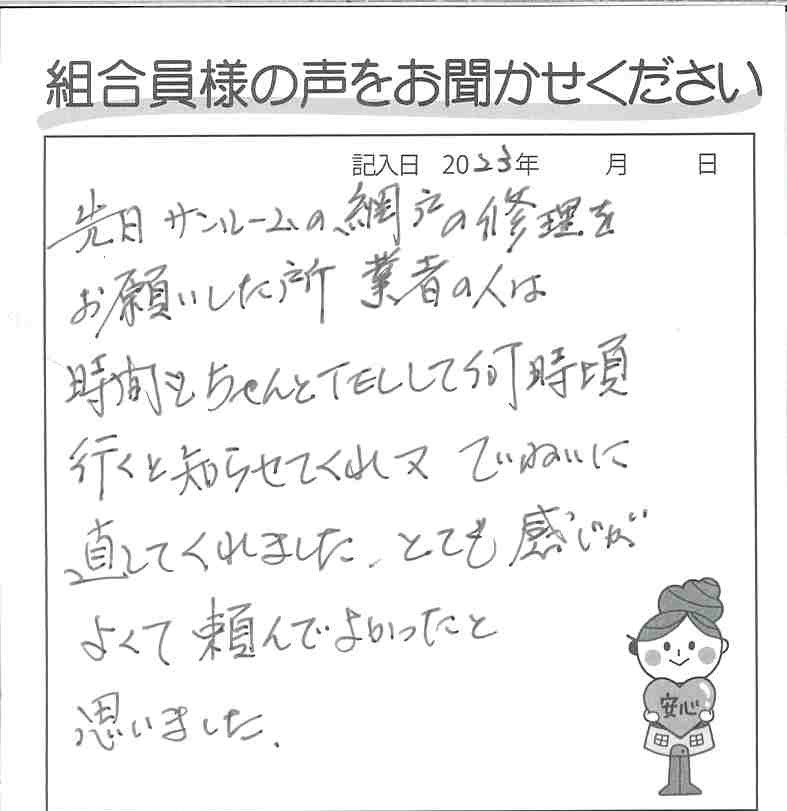 組合員様の声をお聞かせください
記入日 2023年 月 日
先日 サンルームの網戸の修理を
お願いした所 業者の人は
時間もちゃんとTELして何時頃
行くと知らせてくれ又 ていねいに
直してくれました、とても感じが
よくて頼んでよかったと
思いました、
安心